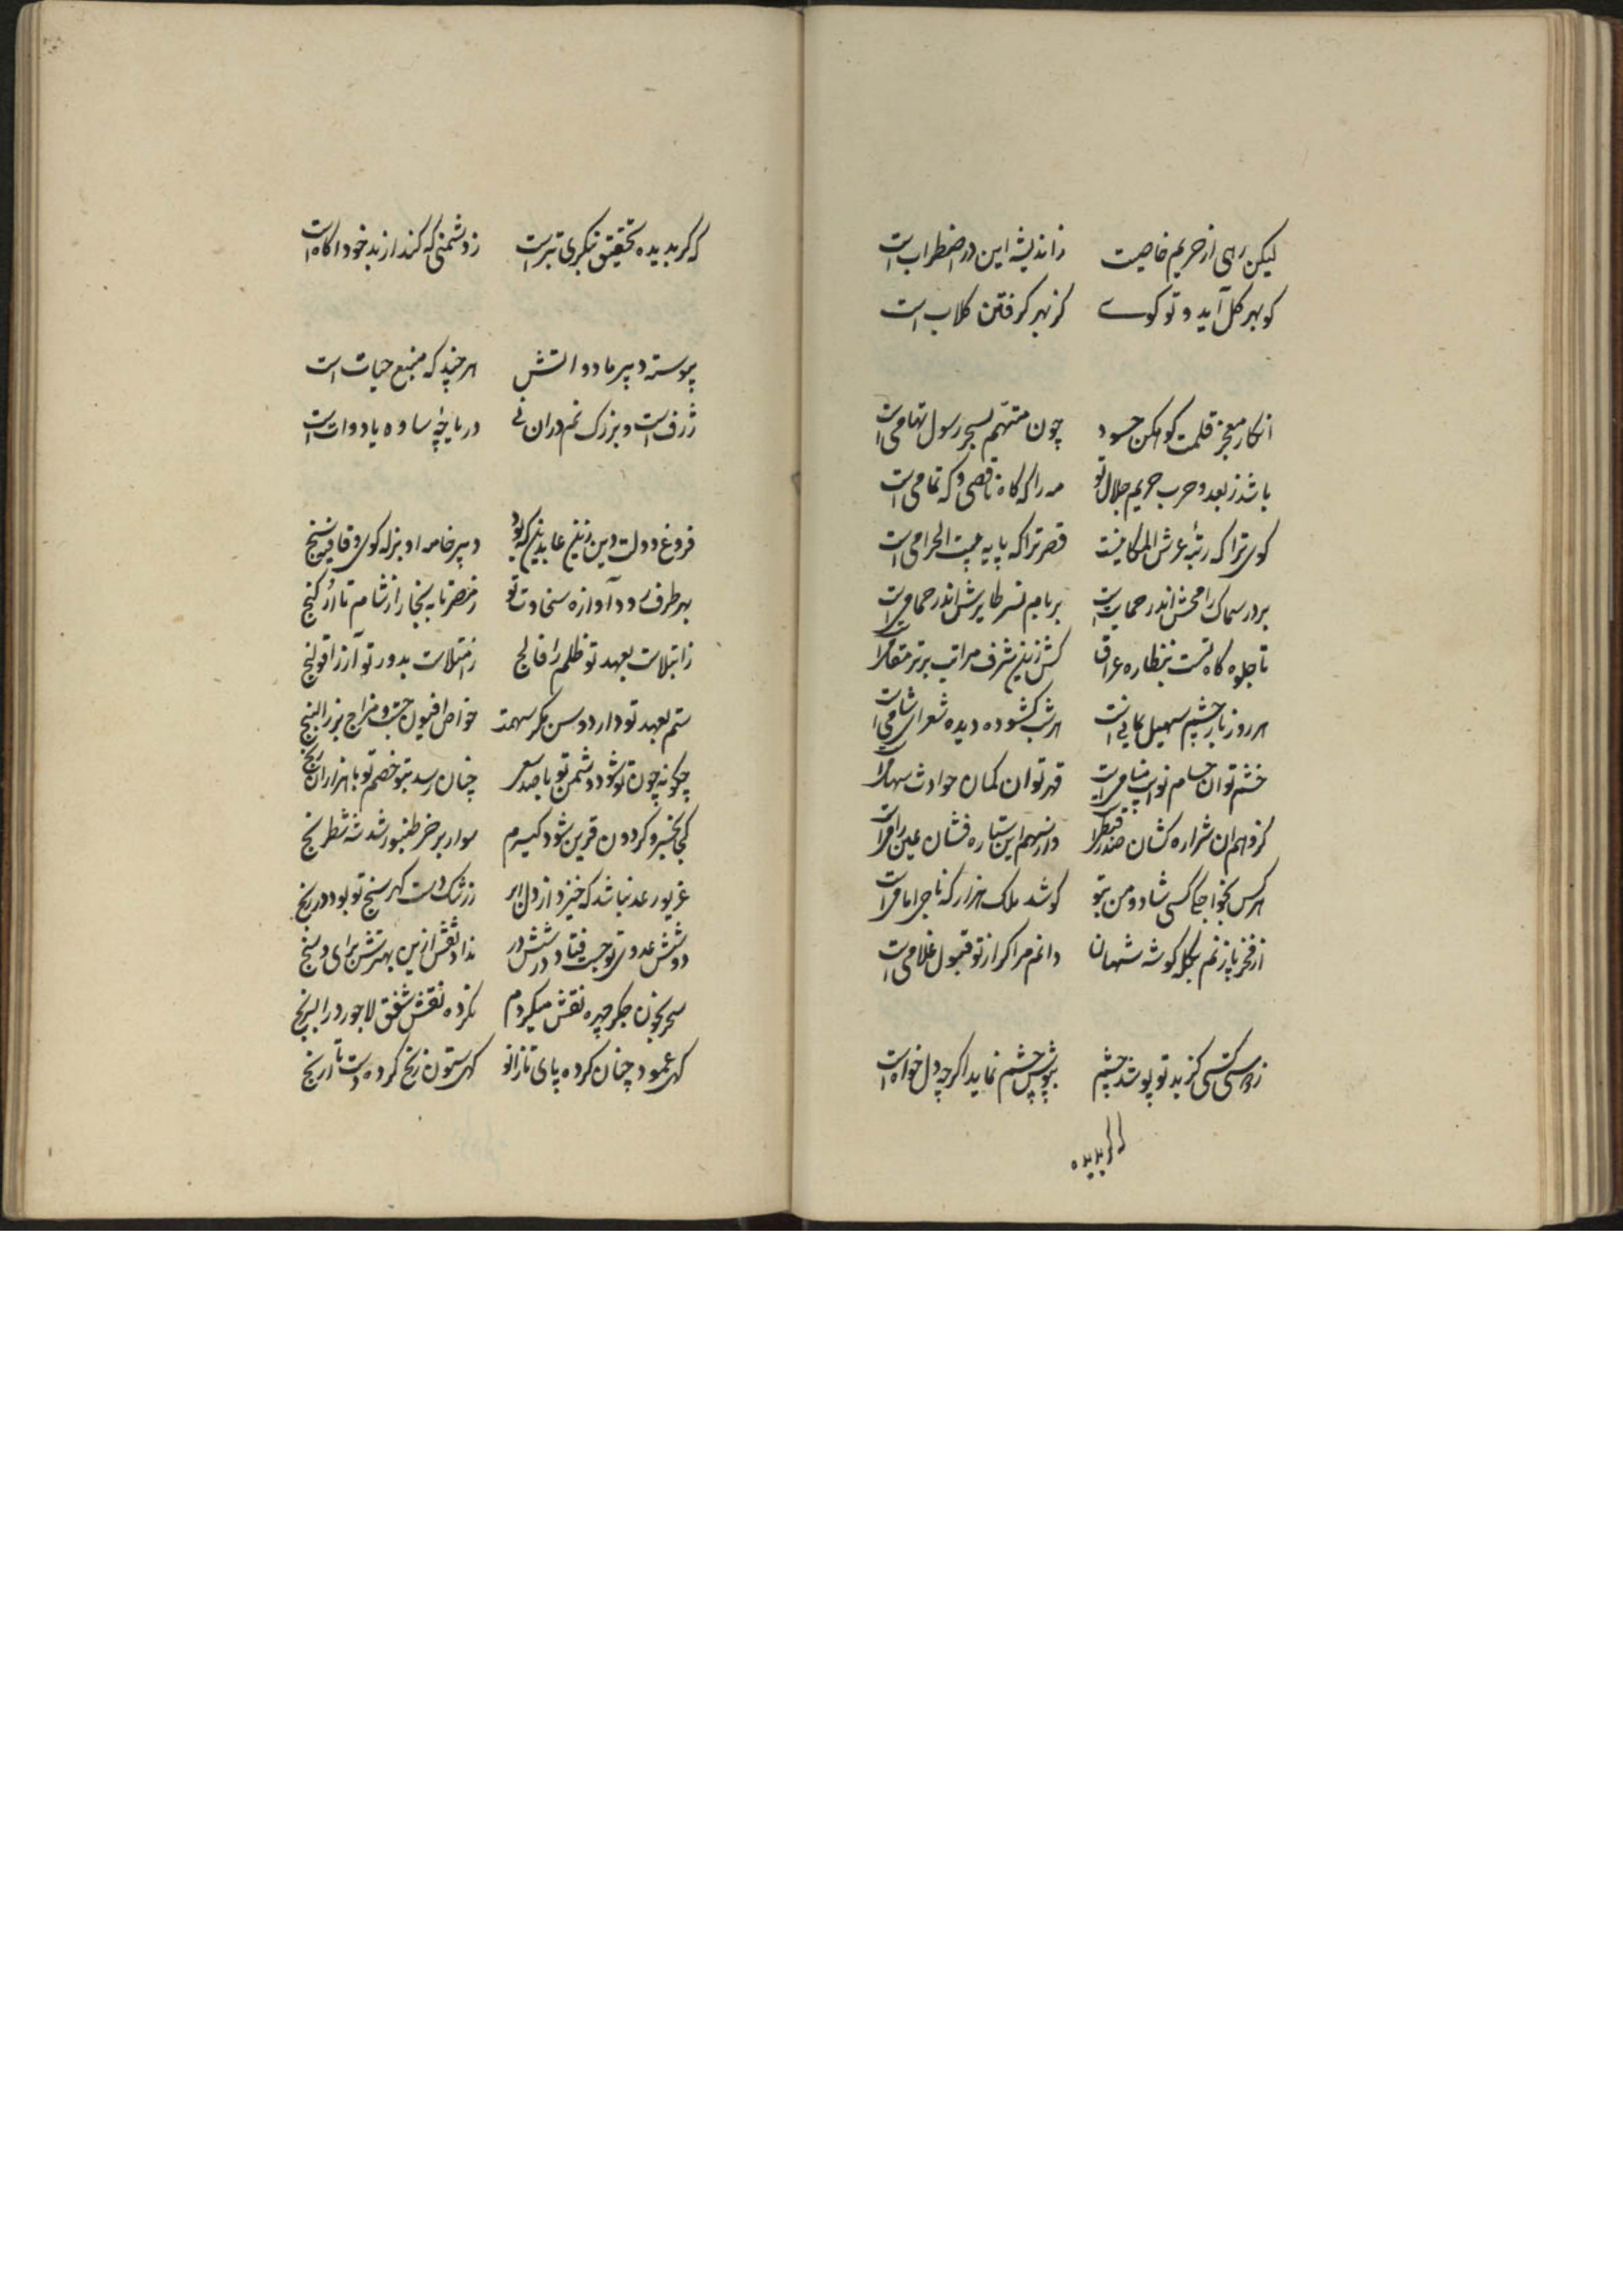 لیکن رهی از حریم خاصیت زاندیشه این در اضطراب است
کو بهر کل آید و تو کوے کز بهر کرفتن کلاب است
انکار معجز قلمت کو مکن حسود چون متهم بسحر رسول تهامی است
باشد ز بعد و حرب حریم جلال تو مه را که کاه ناقصی و که تمامی است
کوی ترا که رتبه عرش المکانیست قصر ترا که پایه بیت الحرامی است
بر در سماک رامحش اندر حمایت است بر بام نسر طایرش اندر حمامی است
تا جلوه کاه تست بنظاره عراق کش زین شرف مراتب برتر مقام را
هر روز باز چشم سهیل یمانی است هر شب کشوده دیده شعرای شامی است
خشم تو ان حسام نوایب قهر تو ان کمان حوادث سهام را
کز وهم ان شراره کشان وز سهم این ستاره فشان عین رامی است
هر کس بخواجکی کسی شاد و من بتو کوشد ملک هزار که ناجراماقی است
از فخر پا زنم بکله کوشه شهان دانم مرا کر از تو قبول غلامی است
ز دوستی کسی کز بد تو پوشد چشم بپوش چشم نماید اکرچه دلخواه است
که کر بدیده
که کر بدیده تحقیق بنکری بتر است ز دشمنی که کند از بد خود اکاه است
پیوسته دبیر ما دواتش هر چند که منبع حیات است
ژرف است و بزرک نم دران نی دریاچه ساوه یا دوات است
فروغ دولت و دین زین عابدین که بود دبیر خامه او بزله کوی و قافیه سنج
بهر طرف رود آوازه سخاوت تو ز مصر تا به بخارا ز شام تا ارکنج
ز ابتلات بعهد تو ظلم را فالج ز امتلات بدور تو آز را قولنج
ستم بعهد تو دارد وسن مکر سهمت خواص افیون جست و مزاج بزر البنج
چکونه چون تو شود دشمن تو با صد سعی چنان رسد بتو خصم تو با هزاران رنج
کی بخسرو کردون قرین شود کیرم سوار بر خر طنبور شد شه شطرنج
غریو رعد نباشد که خیزد از دل ابر ز رشک دست کهر سنج تو بود در رنج
دو شش عدوی تو جست فتاد در ششدر نداد نقش ازین بهترش سرای سپنج
سحر بخون جکر چهره نقش میکردم نکرده نقش شفق لاجورد را البرنج
کهی عمود چنان کرده پای تا زانو کهی ستون زنخ کرده دست تا آرنج